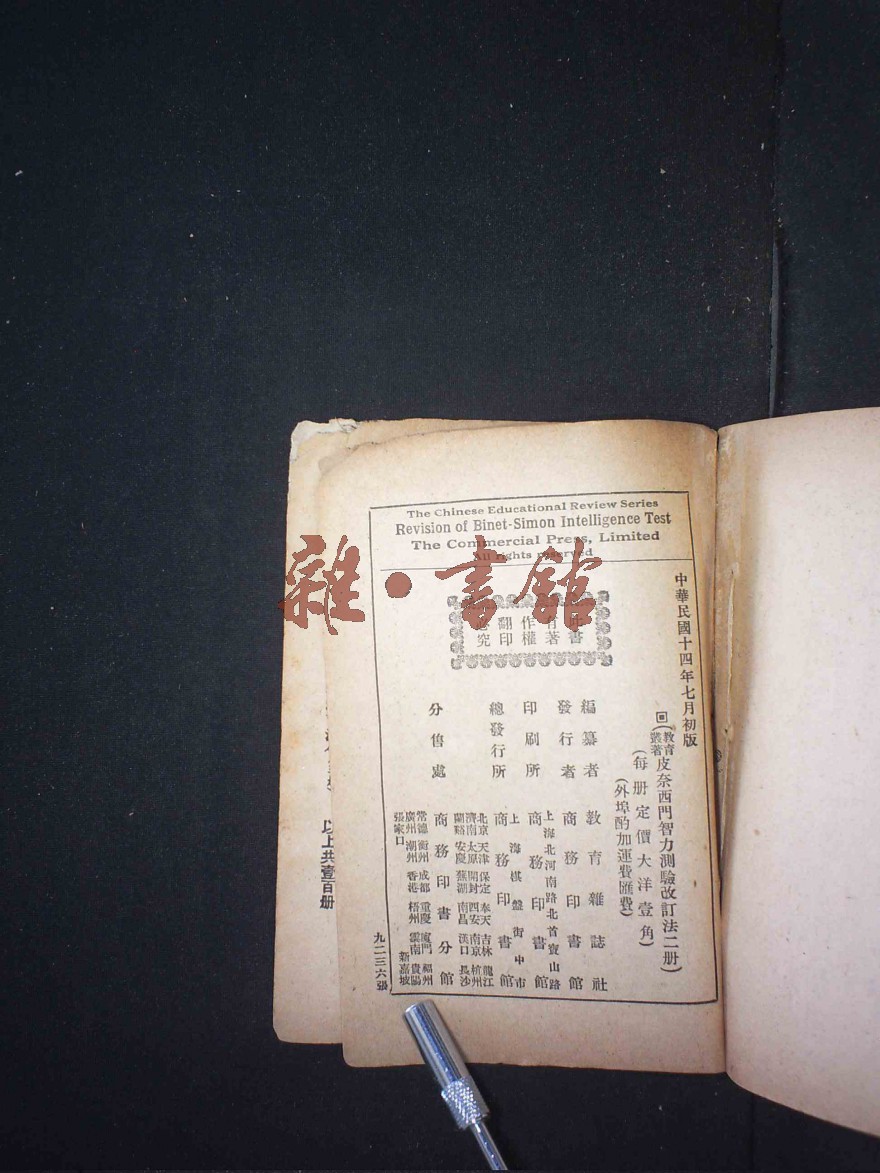 The Chinese Educational Review Series
Revision of Binet-Simon Intelligence Test
The Commercial Press, Limited
All rights reserved
中華民國十四年七月初版
回(教育叢著皮奈西門智力測驗改訂法二册)
(每册定價大洋壹角)
(外埠酌加運費匯費)
作權
翻印
究
編纂者 教育雜誌社
發行者 商務印書館
印刷所 上海北河南路北首寶山路 商務印書館
總發行所 上海棋盤街中市 商務印書館
分售處 商務印書分館
北京 天津 保定 奉天 吉林 龍江
濟南 太原 開封 西安 南京 杭州
蘭谿 安慶 蕪湖 南昌 漢口 長沙
常德 衡州 成都 重慶 廈門 福州
廣州 潮州 香港 梧州 雲南 貴陽
張家口 新嘉坡
九二三六張
以上共壹百册
雜·書館